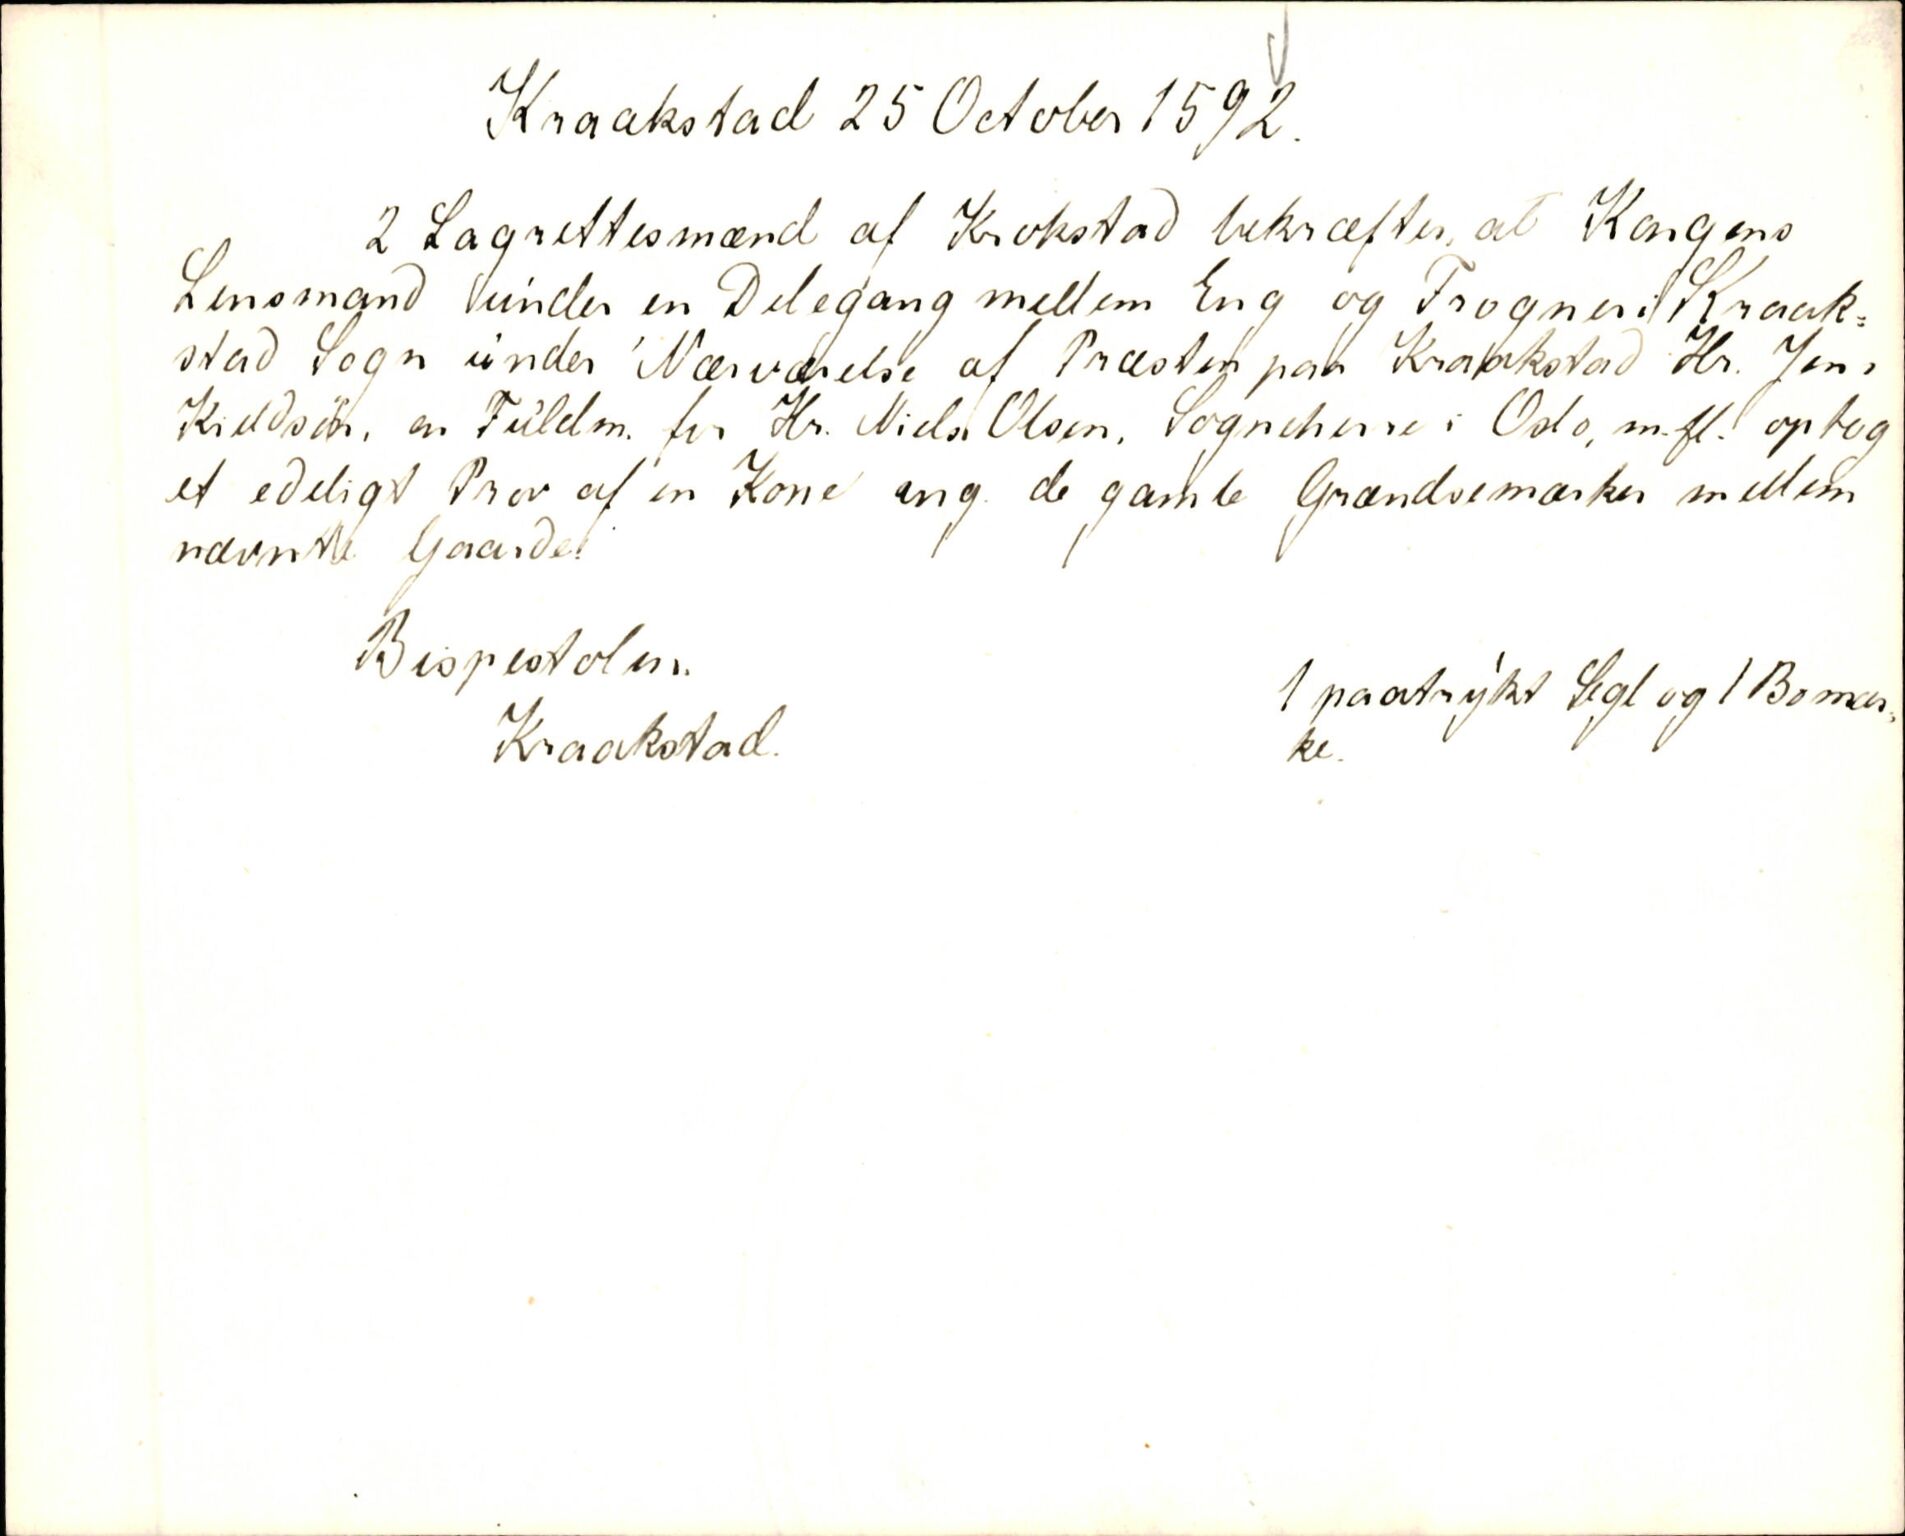 Kraakstad 25 October 1592.
2 Lagrettesmænd af Krokstad bekræfter, at Kongens
Lensmand under en Delegang mellem Eng og Frogner i Kraak-
stad Sogn under Nærværelse af Præsten paa Kraakstad Hr. Jens
Kieldsön, en Fuldm. for Hr. Niels Olsen, Sogneherre i Oslo, m. fl. optog
et edeligt Prov af en Kone ang. de gamle Grændsemærker mellem
nævnte Gaarde.
Bispestolen.
1 paatrykt Segl og 1 Bomær-
Kraakstad.
ke.